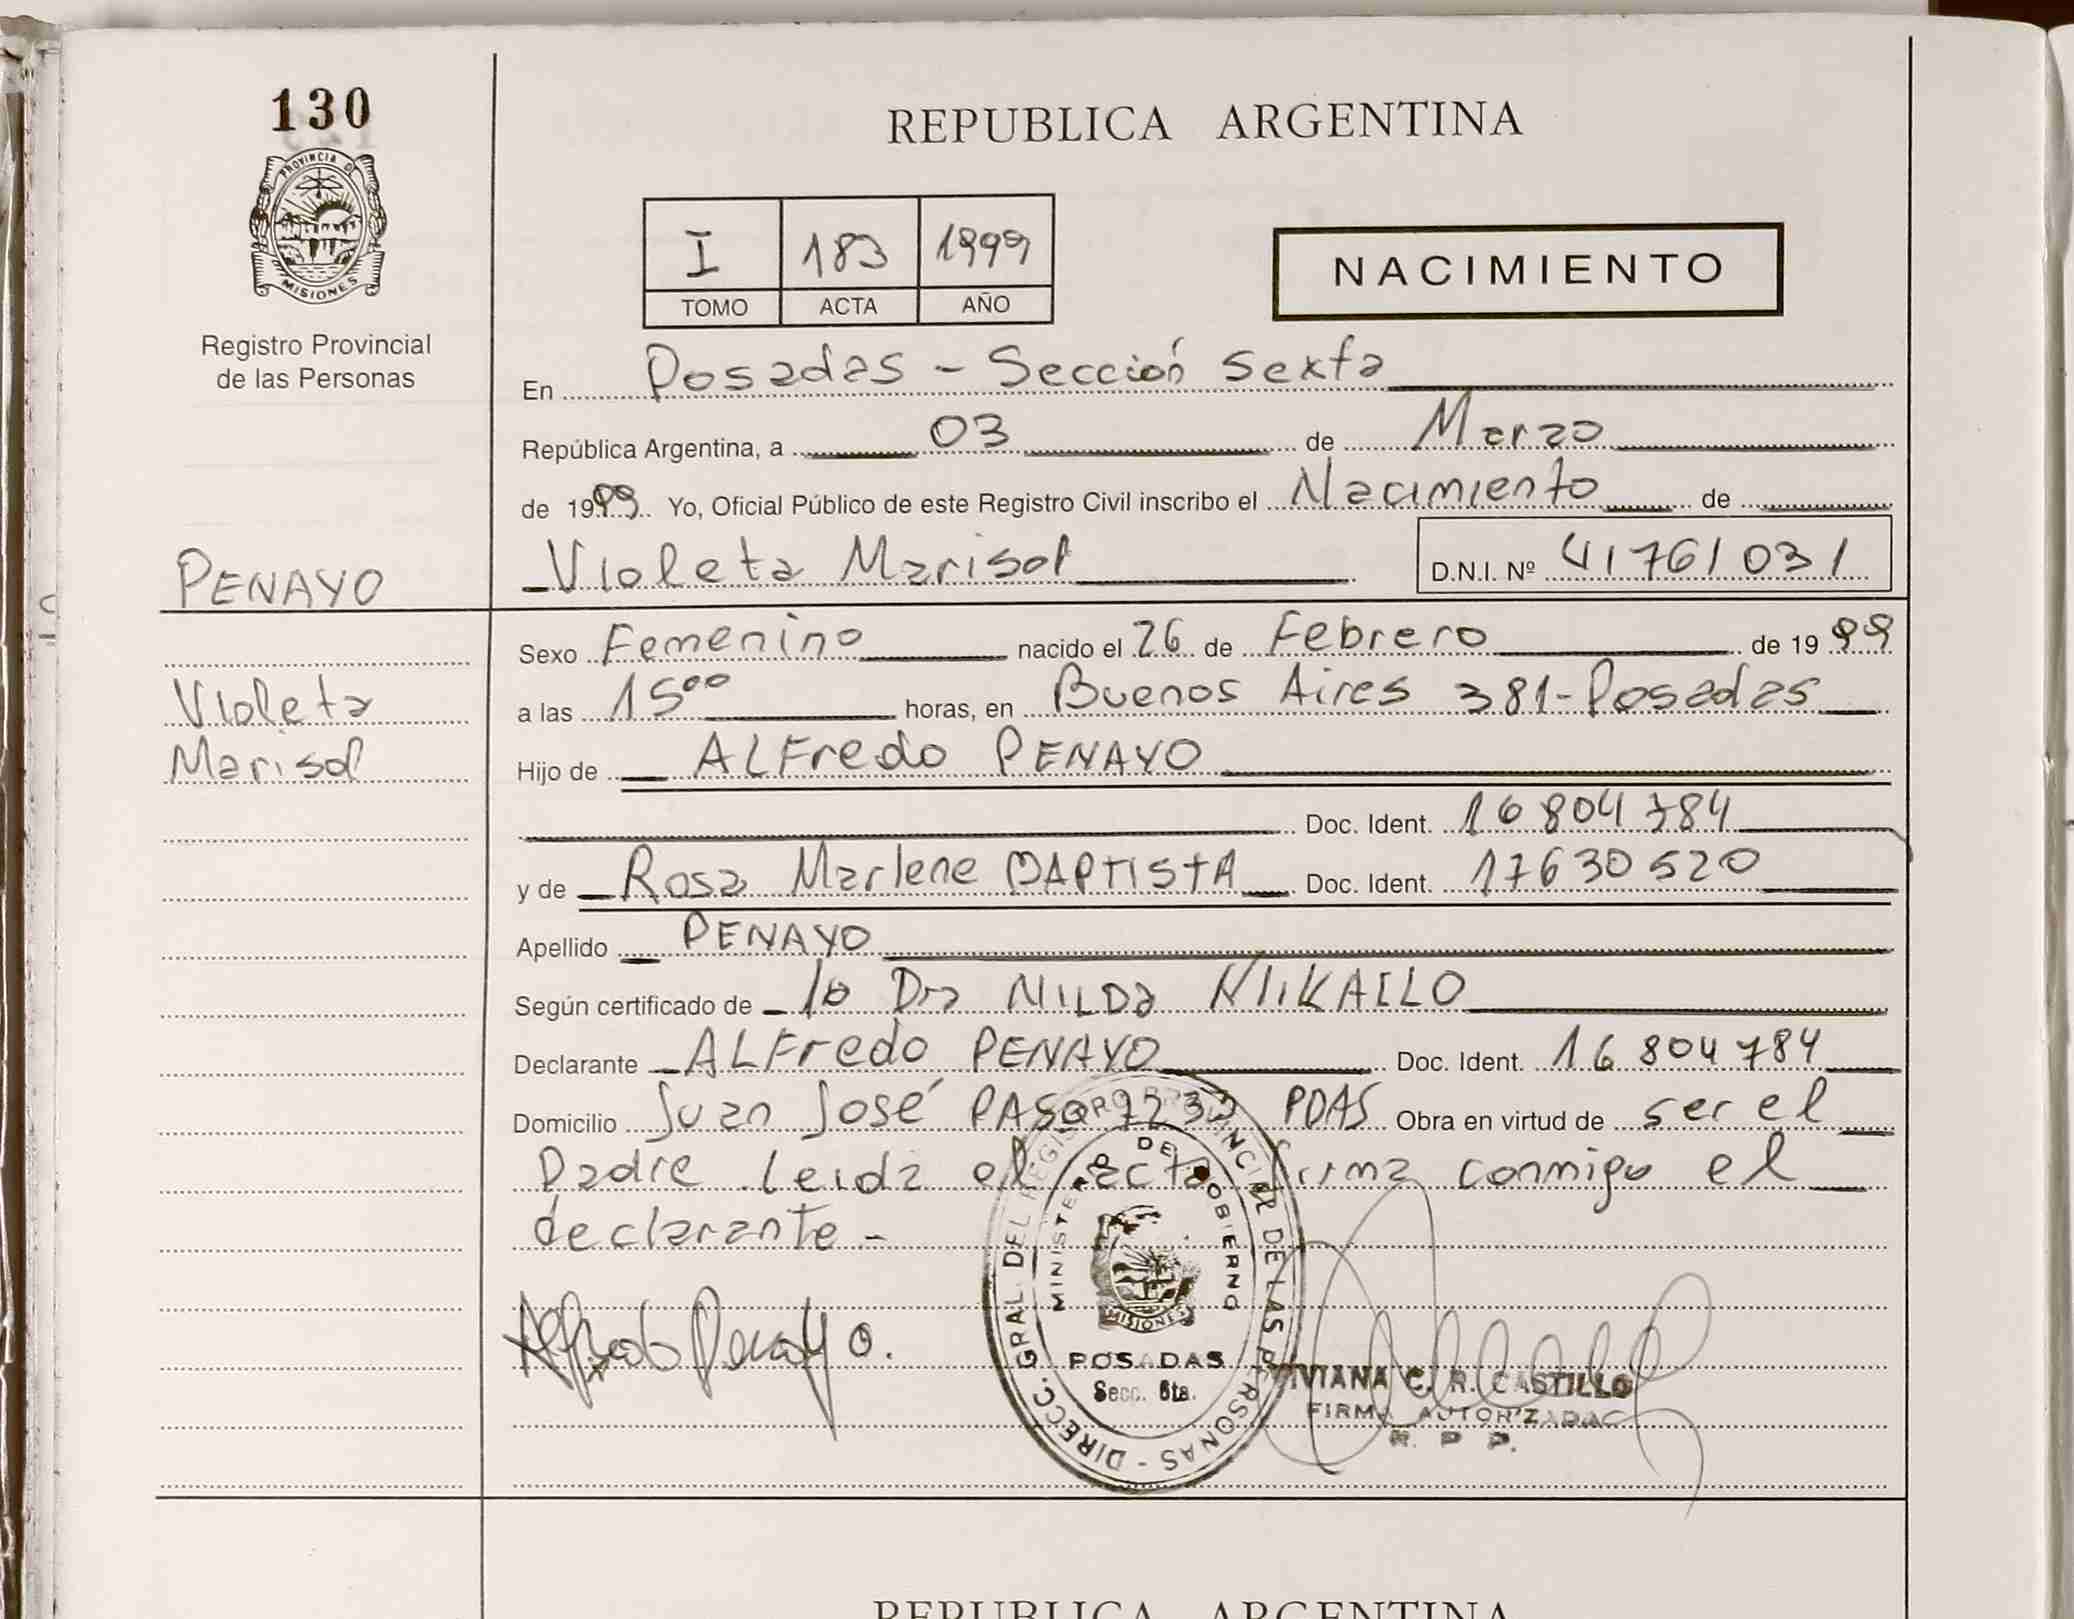 130
PROVINCIA DE
MISIONES
Registro Provincial
de las Personas
REPUBLICA ARGENTINA
I 183 1999
TOMO ACTA AÑO
NACIMIENTO
En Posadas - Sección Sexta
República Argentina, a 03 de Marzo
de 1999 Yo, Oficial Público de este Registro Civil inscribo el Nacimiento de
PENAYO Violeta Marisol D.N.I. Nº 41761031
Sexo Femenino nacido el 26 de Febrero de 1999
Violeta a las 15 00 horas, en Buenos Aires 381-Posadas
Marisol Hijo de ALFredo PENAYO
Doc. Ident. 16804784
y de Rosa Marlene BAPTISTA Doc. Ident. 17630520
Apellido PENAYO
Según certificado de la Dra NILDA
Declarante ALFredo PENAYO Doc. Ident. 16804784
Domicilio Juan José PASO PDAS Obra en virtud de ser el
Padre leida el acta firma conmigo el
declarante -
Alfredo Penayo.
DIRECC. GRAL DEL REGISTRO PROVINCIAL DE LAS PERSONAS -
MINISTERIO DE GOBIERNO
MISIONES
POSADAS
Secc. 6ta.
VIVIANA C. R. CASTILLO
FIRMA AUTORIZADA
R. P. P.
REPUBLICA ARGENTINA